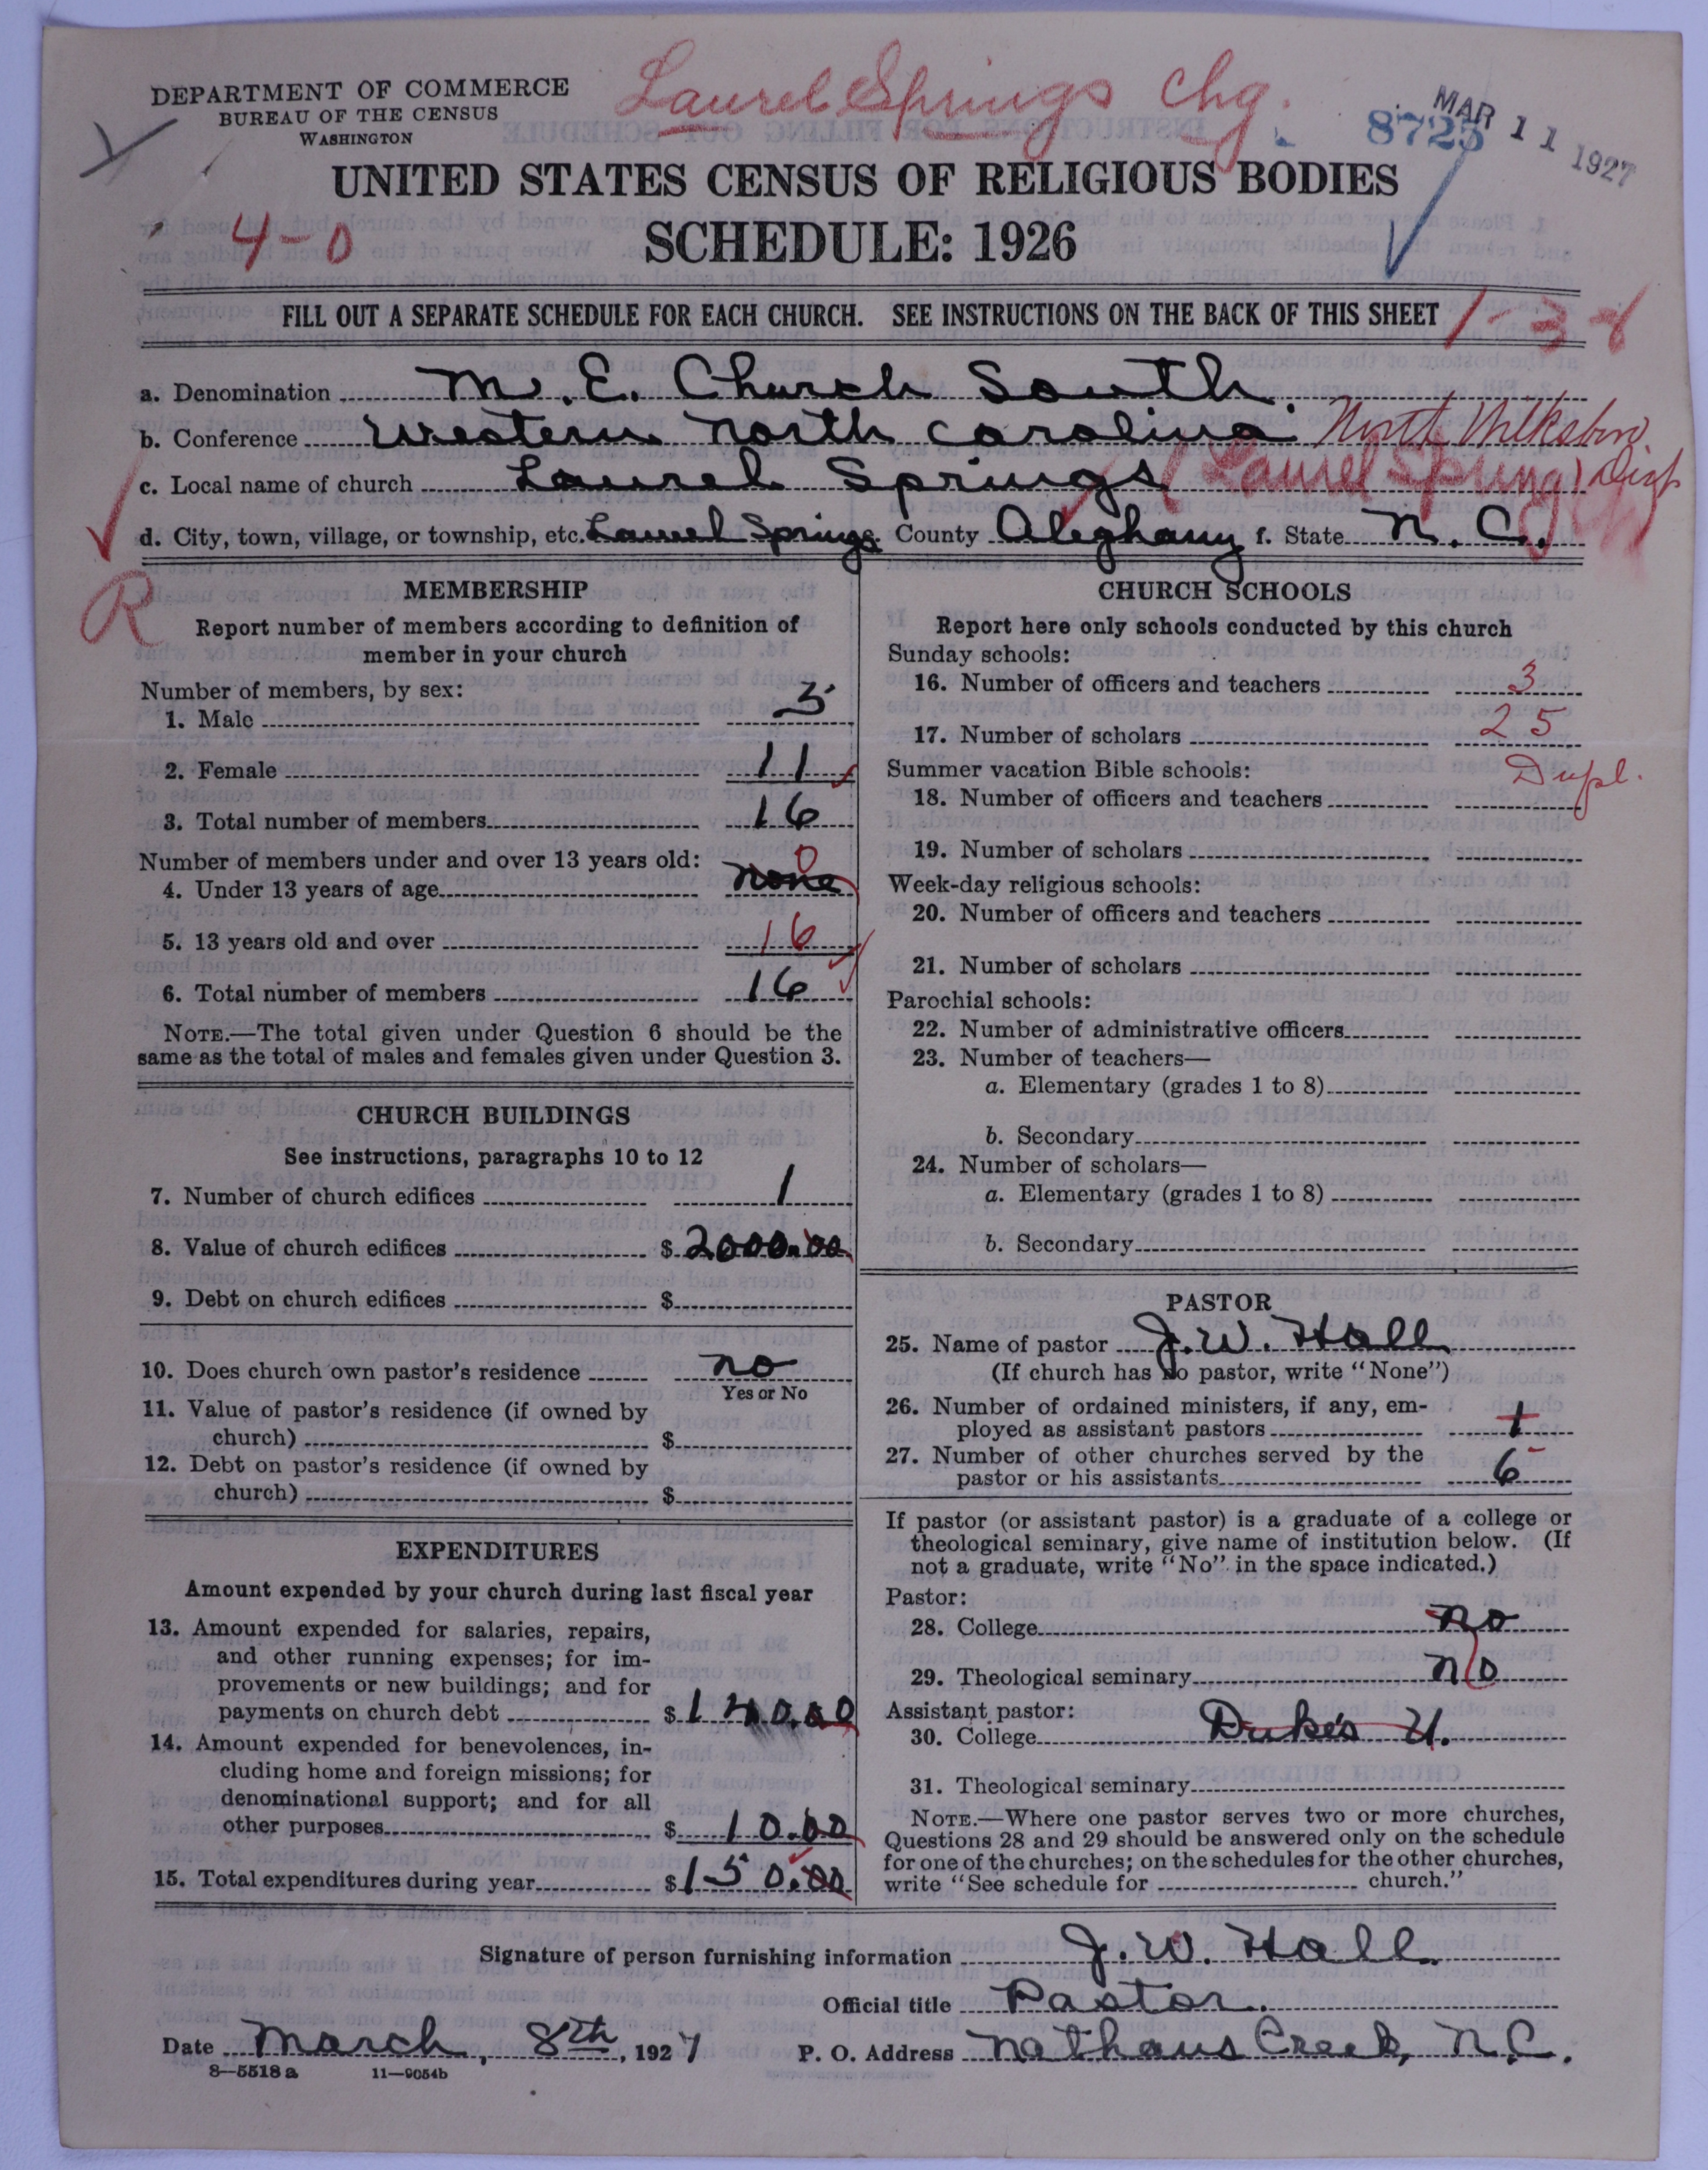 DEPARTMENT OF COMMERCE
BUREAU OF THE CENSUS
WASHINGTON
Laurel Springs Chg.
8725
MAR 11 1927
UNITED STATES CENSUS OF RELIGIOUS BODIES
4-0
SCHEDULE: 1926
FILL OUT A SEPARATE SCHEDULE FOR EACH CHURCH. SEE INSTRUCTIONS ON THE BACK OF THIS SHEET
1-3-
a. Denomination M. E. Church South.
b. Conference Western North Carolina North Wilksboro
c. Local name of church Laurel Springs (Laurel Spring) Dist
d. City, town, village, or township, etc. Laurel Springs County Aleghany f. State N. C.
R
MEMBERSHIP
Report number of members according to definition of
member in your church
Number of members, by sex:
1. Male 5
2. Female 11
3. Total number of members 16
Number of members under and over 13 years old: 0
4. Under 13 years of age none
5. 13 years old and over 16
6. Total number of members 16
NOTE.—The total given under Question 6 should be the
same as the total of males and females given under Question 3.
CHURCH BUILDINGS
See instructions, paragraphs 10 to 12
7. Number of church edifices 1
8. Value of church edifices $ 2000.00
9. Debt on church edifices $
10. Does church own pastor's residence no
Yes or No
11. Value of pastor's residence (if owned by
church) $
12. Debt on pastor's residence (if owned by
church) $
EXPENDITURES
Amount expended by your church during last fiscal year
13. Amount expended for salaries, repairs,
and other running expenses; for im-
provements or new buildings; and for
payments on church debt $ 140.00
14. Amount expended for benevolences, in-
cluding home and foreign missions; for
denominational support; and for all
other purposes $ 10.00
15. Total expenditures during year $ 150.00
CHURCH SCHOOLS
Report here only schools conducted by this church
Sunday schools:
16. Number of officers and teachers 3
17. Number of scholars 25
Summer vacation Bible schools: Dupl.
18. Number of officers and teachers
19. Number of scholars
Week-day religious schools:
20. Number of officers and teachers
21. Number of scholars
Parochial schools:
22. Number of administrative officers
23. Number of teachers—
a. Elementary (grades 1 to 8)
b. Secondary
24. Number of scholars—
a. Elementary (grades 1 to 8)
b. Secondary
PASTOR
25. Name of pastor J. W. Hall
(If church has no pastor, write "None")
26. Number of ordained ministers, if any, em-
ployed as assistant pastors 1
27. Number of other churches served by the
pastor or his assistants 6
If pastor (or assistant pastor) is a graduate of a college or
theological seminary, give name of institution below. (If
not a graduate, write "No" in the space indicated.)
Pastor:
28. College no
29. Theological seminary no
Assistant pastor:
30. College Duke's U.
31. Theological seminary
NOTE.—Where one pastor serves two or more churches,
Questions 28 and 29 should be answered only on the schedule
for one of the churches; on the schedules for the other churches,
write "See schedule for church."
Signature of person furnishing information J. W. Hall
Official title Pastor.
Date March, 8th, 1927 P. O. Address Nathans Creek, N.C.
8—5518 a 11—9054b